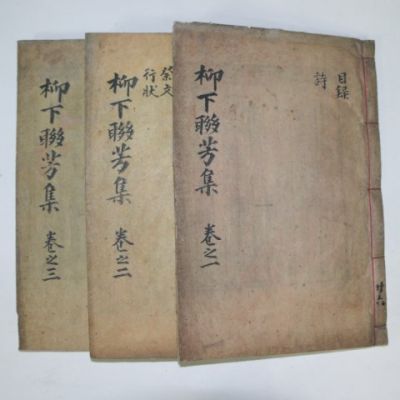 目錄
詩
柳下聯芳集 卷之一
祭文
行狀
柳下聯芳集 卷之二
柳下聯芳集 卷之三